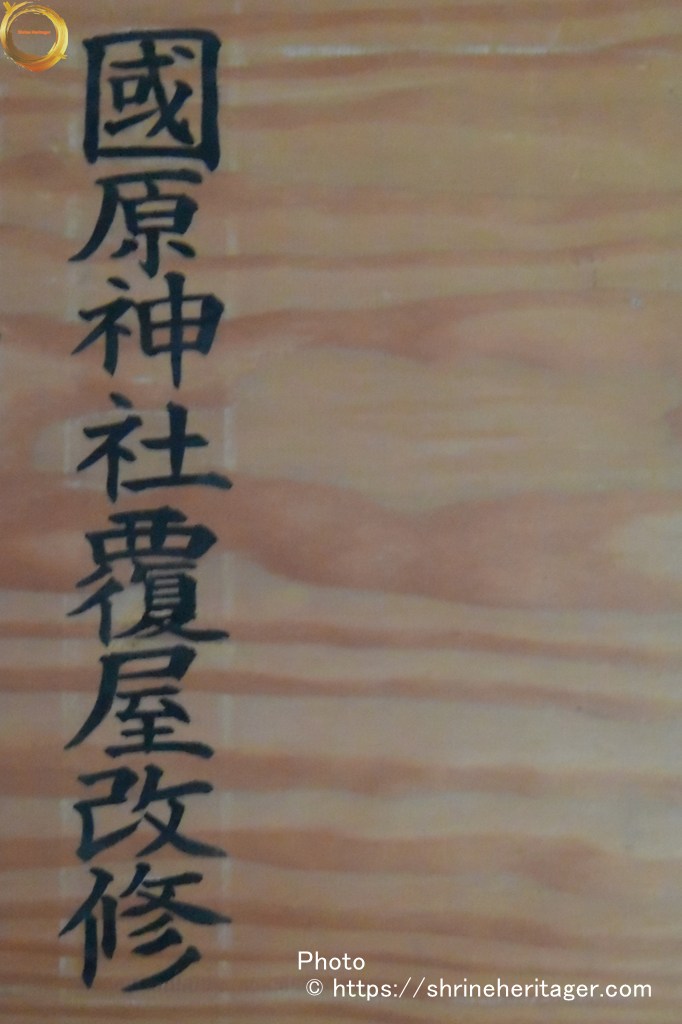 國原神社覆屋改修
Shrine Heritager
Photo
© https://shrineheritager.com